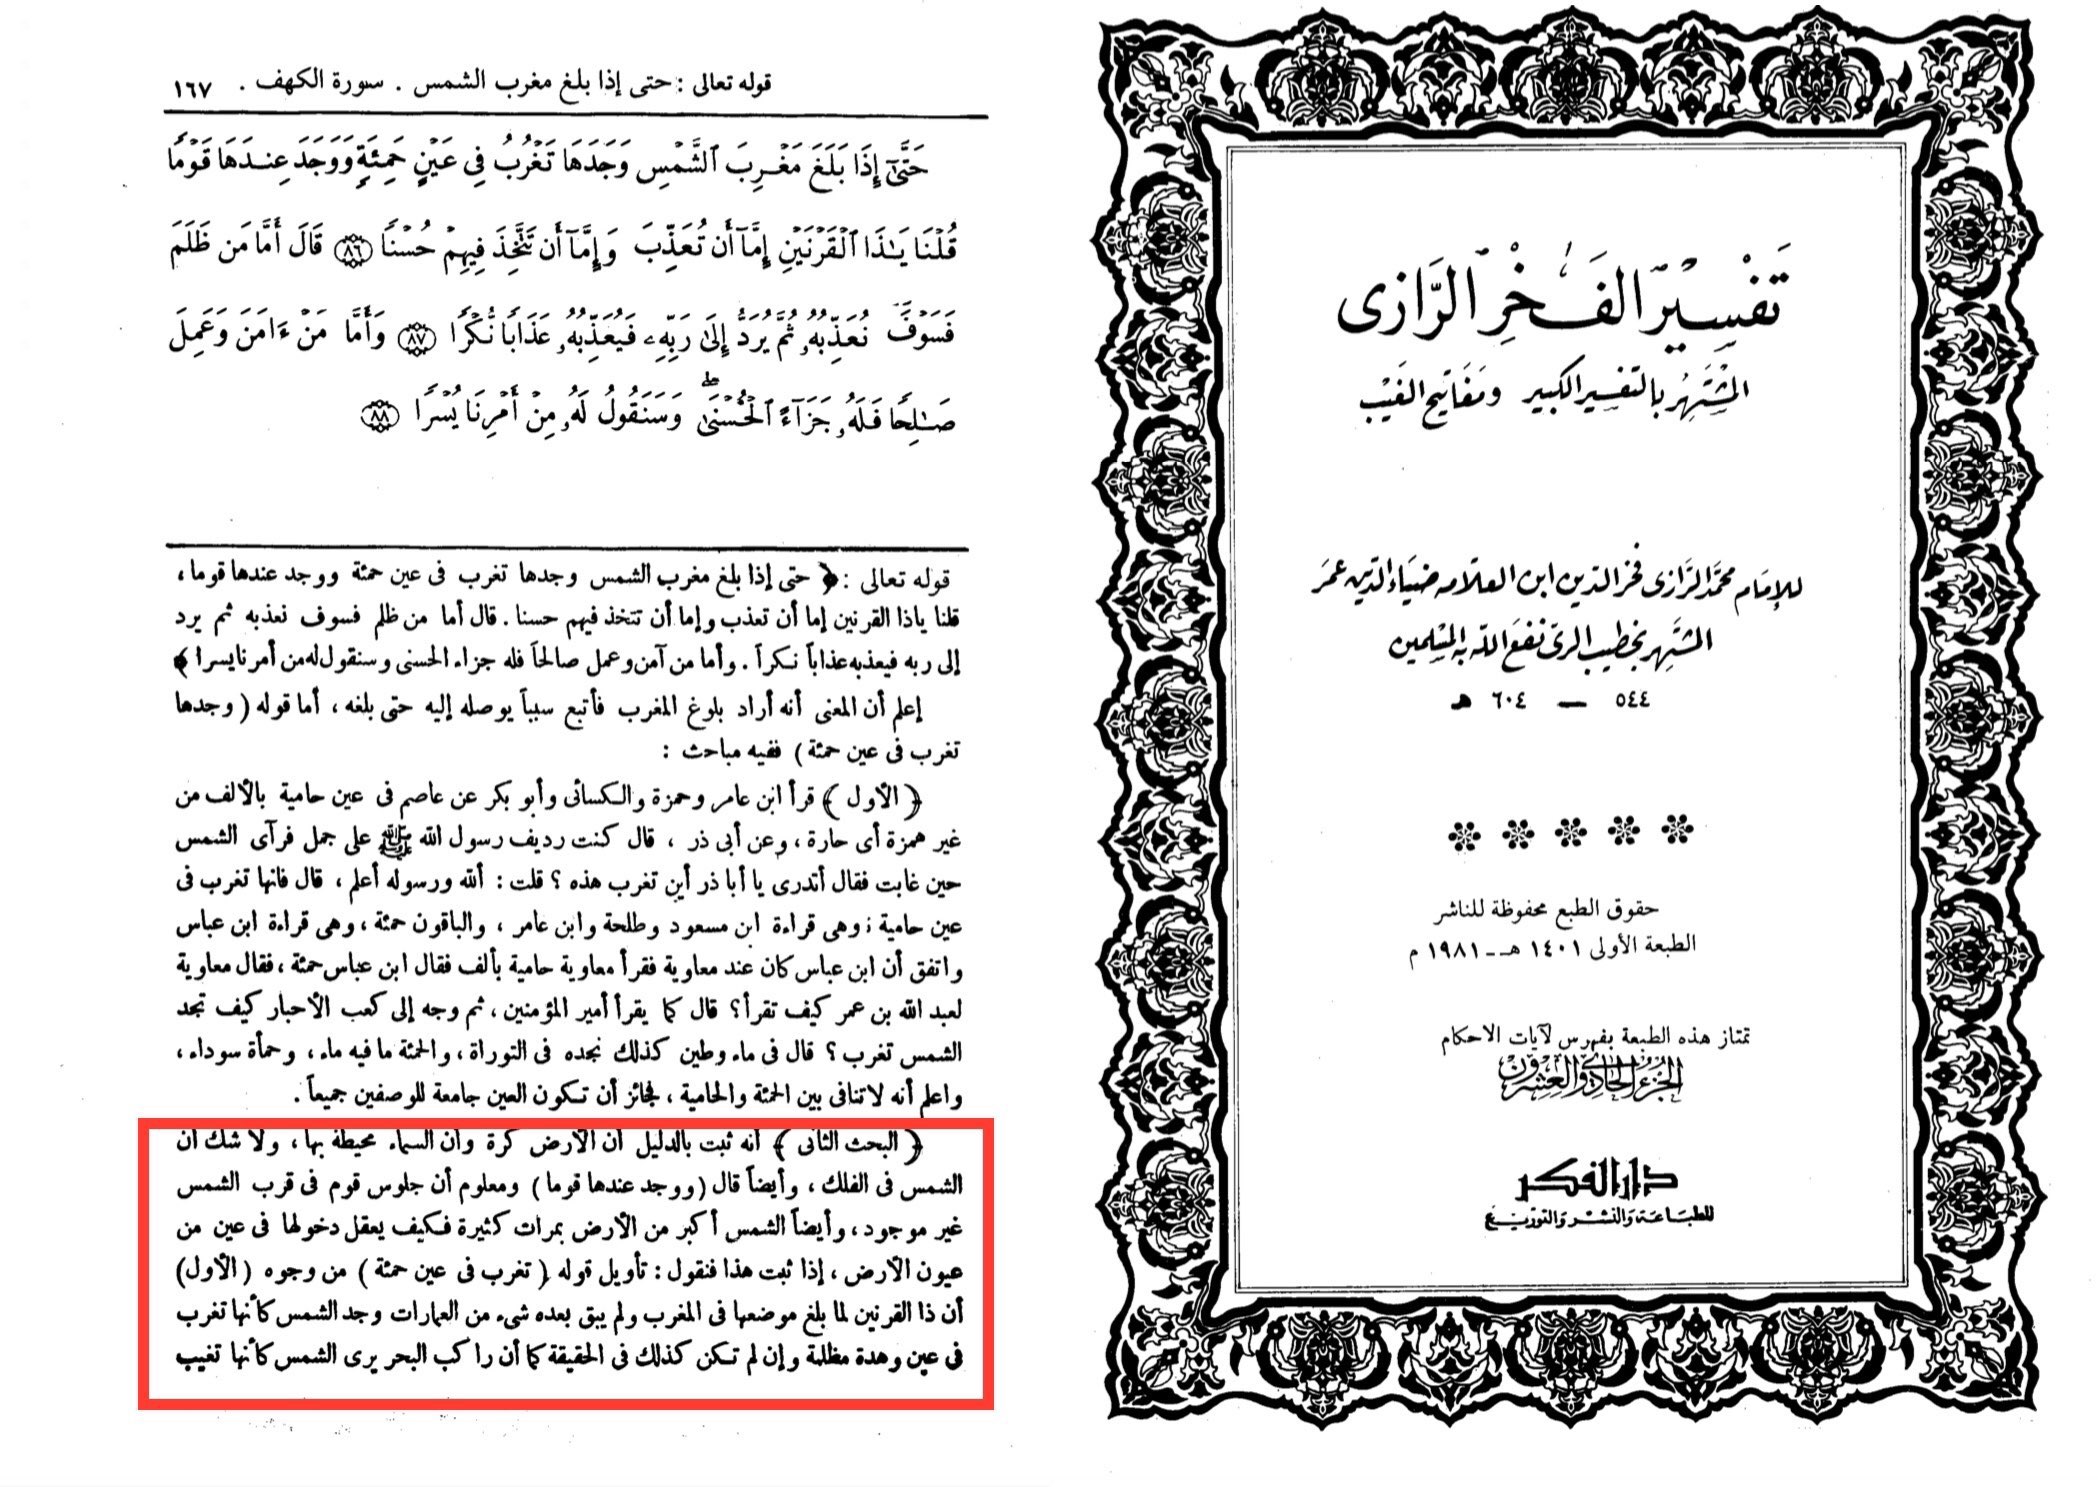 قوله تعالى : حتى إذا بلغ مغرب الشمس . سورة الكهف . ١٦٧
حَتَّىٰٓ إِذَا بَلَغَ مَغْرِبَ ٱلشَّمْسِ وَجَدَهَا تَغْرُبُ فِى عَيْنٍ حَمِئَةٍ وَوَجَدَ عِندَهَا قَوْمًا
قُلْنَا يَـٰذَا ٱلْقَرْنَيْنِ إِمَّآ أَن تُعَذِّبَ وَإِمَّآ أَن تَتَّخِذَ فِيهِمْ حُسْنًا ٨٦ قَالَ أَمَّا مَن ظَلَمَ
فَسَوْفَ نُعَذِّبُهُۥ ثُمَّ يُرَدُّ إِلَىٰ رَبِّهِۦ فَيُعَذِّبُهُۥ عَذَابًا نُّكْرًا ٨٧ وَأَمَّا مَنْ ءَامَنَ وَعَمِلَ
صَـٰلِحًا فَلَهُۥ جَزَآءً ٱلْحُسْنَىٰ ۖ وَسَنَقُولُ لَهُۥ مِنْ أَمْرِنَا يُسْرًا ٨٨
قوله تعالى : ﴿ حتى إذا بلغ مغرب الشمس وجدها تغرب فى عين حمئة ووجد عندها قوما ،
قلنا ياذا القرنين إما أن تعذب وإما أن تتخذ فيهم حسنا . قال أما من ظلم فسوف نعذبه ثم يرد
إلى ربه فيعذبه عذاباً نكراً . وأما من آمن وعمل صالحاً فله جزاء الحسنى وسنقول له من أمرنا يسرا ﴾
إعلم أن المعنى أنه أراد بلوغ المغرب فأتبع سبباً يوصله إليه حتى بلغه ، أما قوله ( وجدها
تغرب فى عين حمئة ) ففيه مباحث :
﴿ الأول ﴾ قرأ ابن عامر وحمزة والكسائى وأبو بكر عن عاصم فى عين حامية بالألف من
غير همزة أى حارة ، وعن أبى ذر ، قال كنت رديف رسول الله ﷺ على جمل فرآى الشمس
حين غابت فقال أتدرى يا أبا ذر أين تغرب هذه ؟ قلت : ألله ورسوله أعلم ، قال فانها تغرب فى
عين حامية ; وهى قراءة ابن مسعود وطلحة وابن عامر ، والباقون حمئة ، وهى قراءة ابن عباس
واتفق أن ابن عباس كان عند معاوية فقرأ معاوية حامية بألف فقال ابن عباس حمئة ، فقال معاوية
لعبد الله بن عمر كيف تقرأ ؟ قال كما يقرأ أمير المؤمنين ، ثم وجه إلى كعب الأحبار كيف تجد
الشمس تغرب ؟ قال فى ماء وطين كذلك نجده فى التوراة ، والحمئة ما فيه ماء ، وحمأة سوداء ،
واعلم أنه لا تنافى بين الحمئة والحامية ، فجائز أن تكون العين جامعة للوصفين جميعاً .
﴿ البحث الثانى ﴾ أنه ثبت بالدليل أن الأرض كرة وأن السماء محيطة بها ، ولا شك أن
الشمس فى الفلك ، وأيضاً قال ( ووجد عندها قوما ) ومعلوم أن جلوس قوم فى قرب الشمس
غير موجود ، وأيضاً الشمس أكبر من الأرض بمرات كثيرة فكيف يعقل دخولها فى عين من
عيون الأرض ، إذا ثبت هذا فنقول : تأويل قوله ( تغرب فى عين حمئة ) من وجوه ( الأول )
أن ذا القرنين لما بلغ موضعها فى المغرب ولم يبق بعده شىء من العمارات وجد الشمس كأنها تغرب
فى عين وهدة مظلمة وإن لم تكن كذلك فى الحقيقة كما أن راكب البحر يرى الشمس كأنها تغيب
تَفْسِيرُ الفَخْرِ الرَّازِى
المُشْتَهِر بالتفسير الكبير ومَفَاتِيح الغَيْبِ
للإمام محمَّد الرَّازى فخر الدين ابن العلامة ضياء الدين عمر
المشتهر بخطيب الرى نفع الله به المسلمين
٥٤٤ — ٦٠٤ هـ
حقوق الطبع محفوظة للناشر
الطبعة الأولى ١٤٠١ هـ - ١٩٨١ م
تمتاز هذه الطبعة بفهرس لآيات الاحكام
الجزء الحادي والعشرون
دار الفكر
للطباعة والنشر والتوزيع